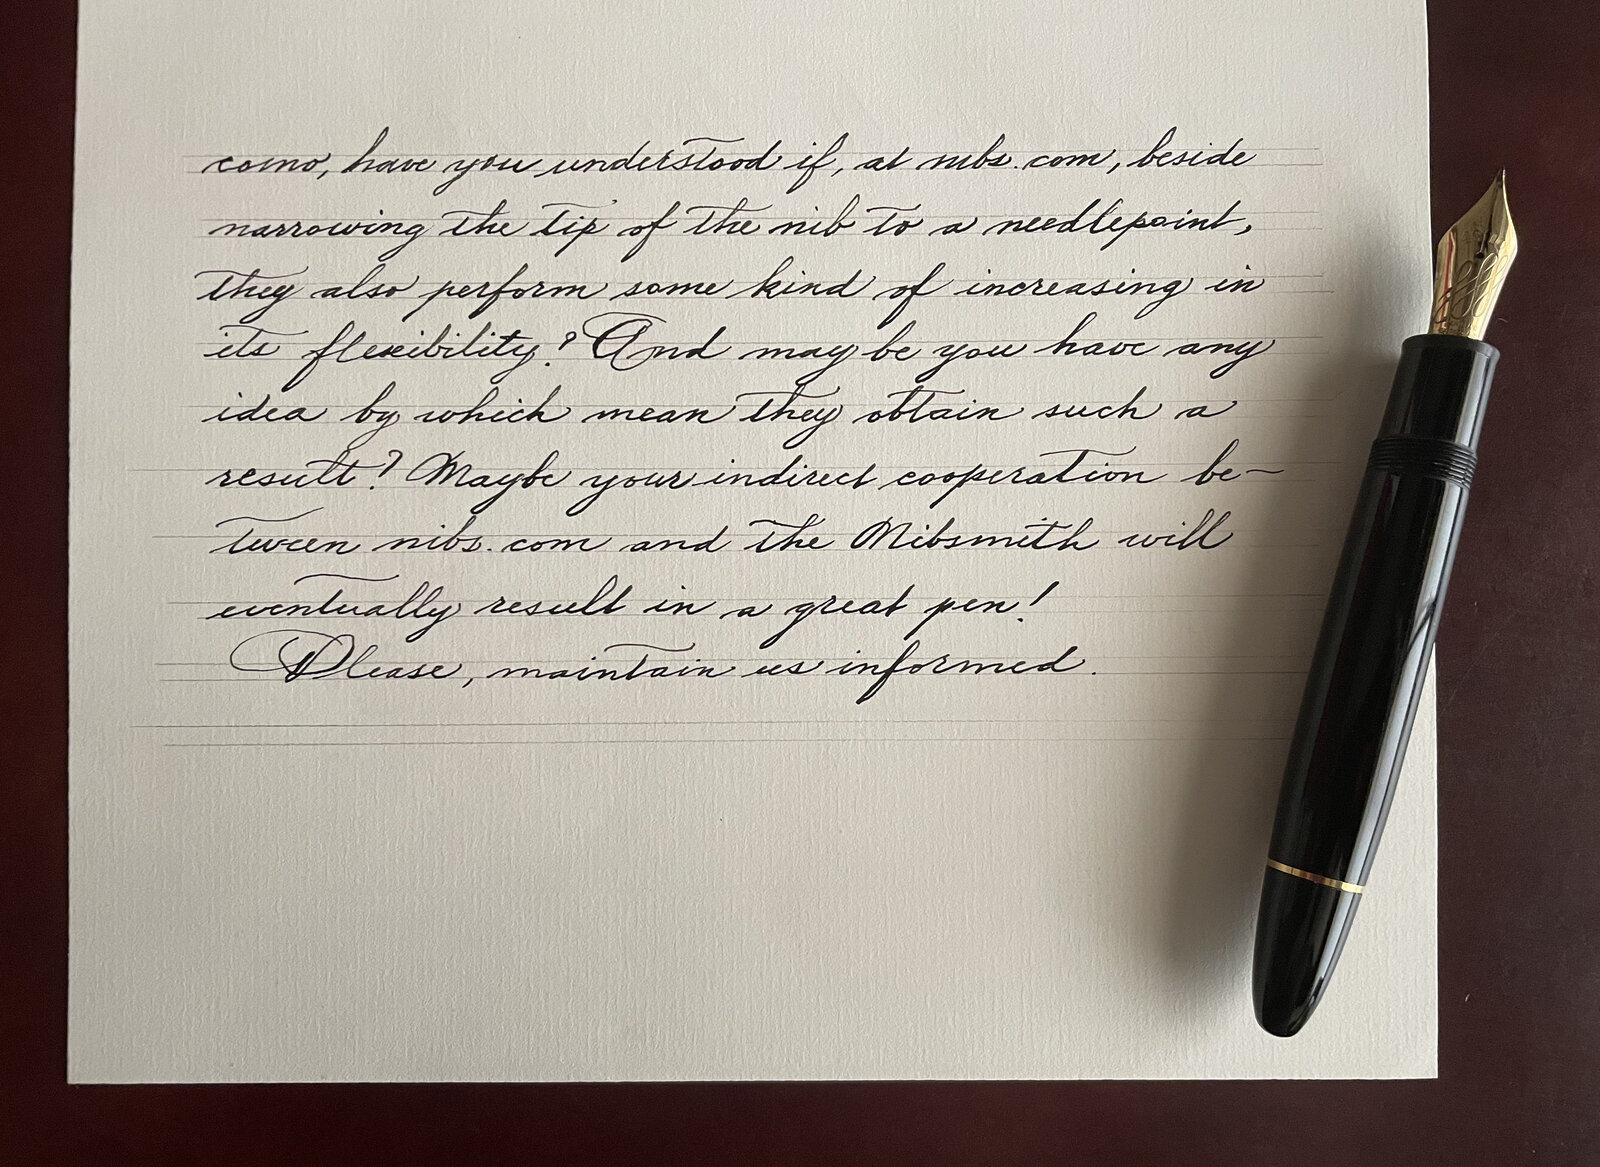 como, have you understood if, at nibs.com, beside
narrowing the tip of the nib to a needlepoint,
they also perform some kind of increasing in
its flexibility? And may be you have any
idea by which mean they obtain such a
result? Maybe your indirect cooperation be-
tween nibs.com and the Nibsmith will
eventually result in a great pen!
Please, maintain us informed.